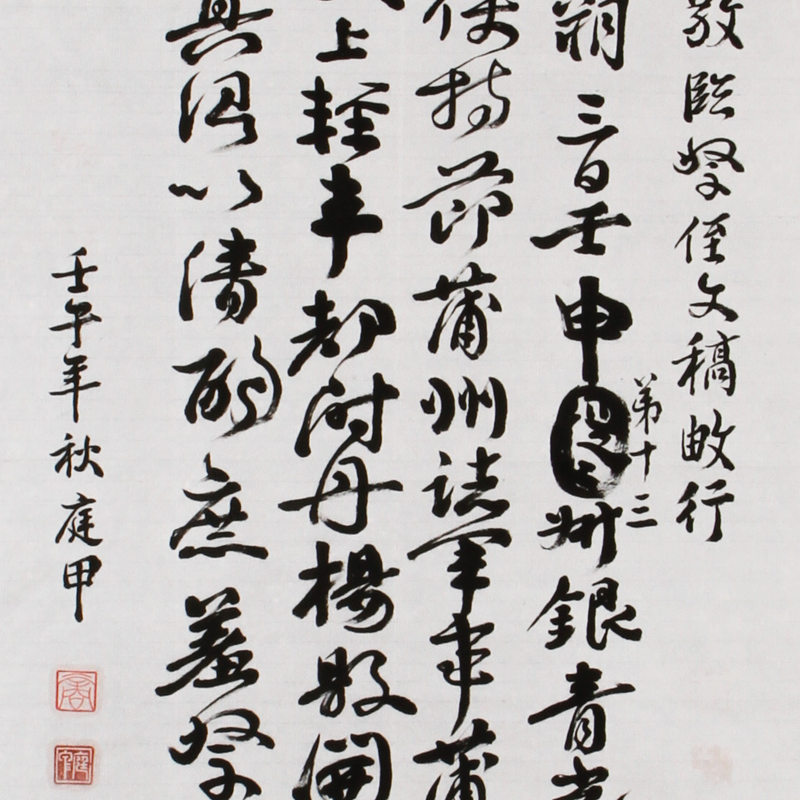 敬臨祭侄文稿數行
朔三日壬申
第十三
州銀青光
使持節蒲州諸軍事蒲
上輕車都尉丹楊縣開
真卿以清酌庶羞祭
壬午年秋庭甲